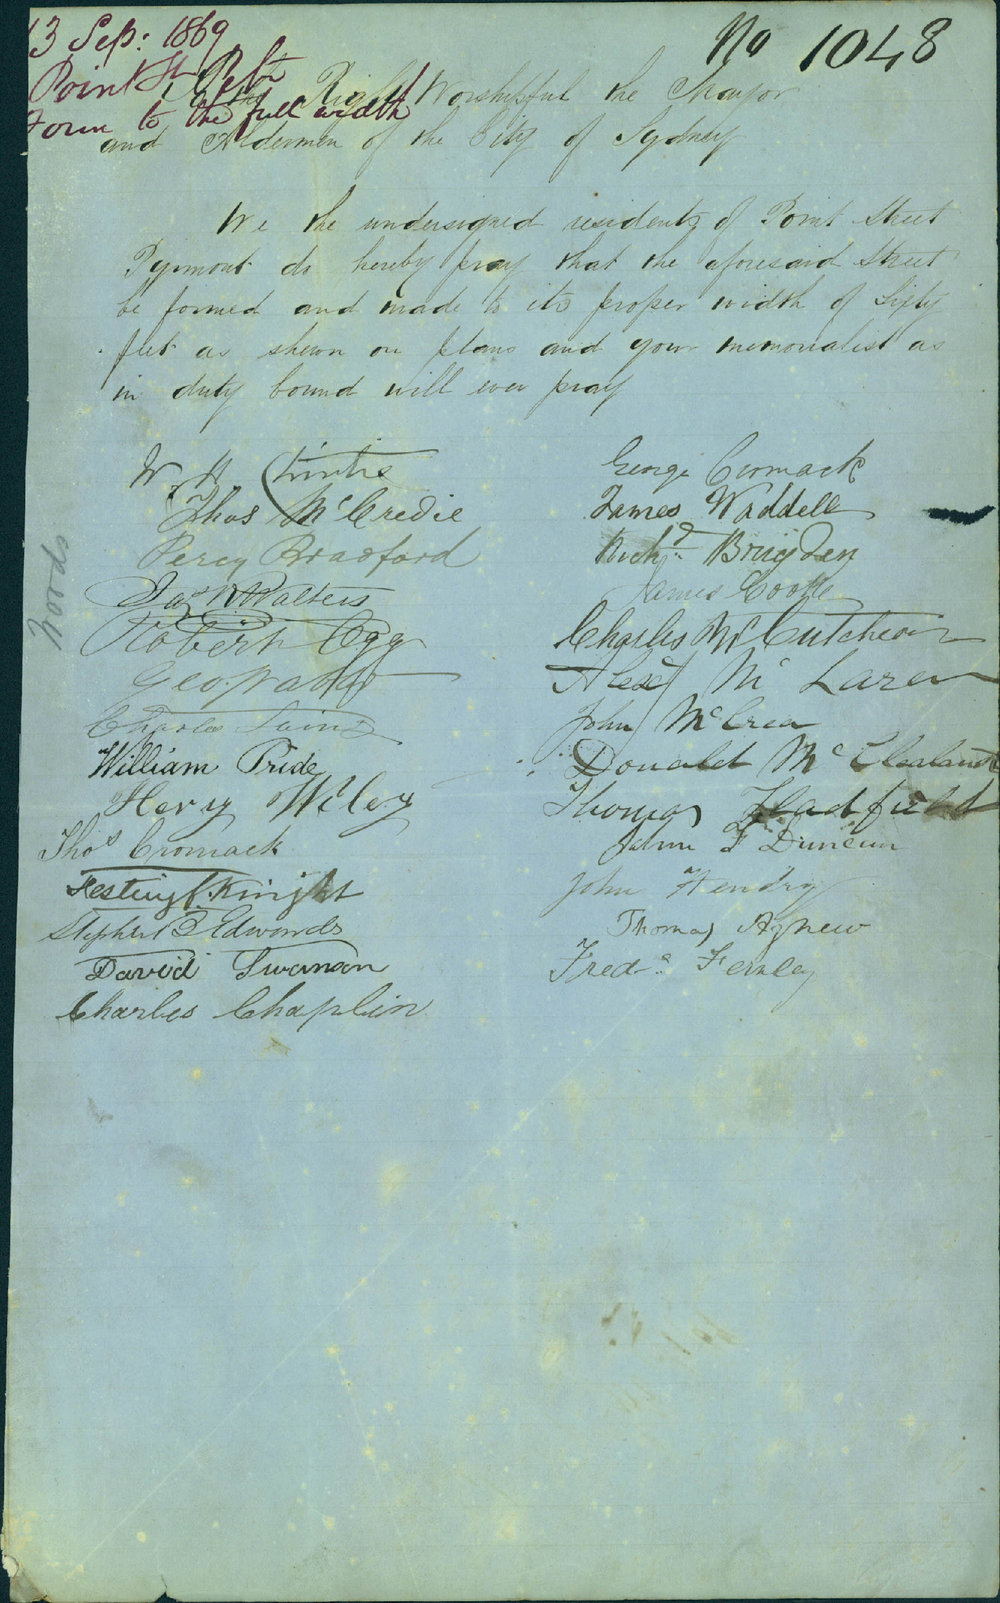 13 Sep: 1869
No 1048
Point St Petn
Form to the full width
To the Right Worshipful the Mayor
and Aldermen of the City of Sydney
We the undersigned residents of Point Street
Pyrmont do hereby pray that the aforesaid Street
be formed and made to its proper width of Sixty
feet as shewn on plans and your memorialist as
in duty bound will ever pray
W. H.
Thos McCredie
Percy Bradford
Jas Walters
Robert Ogg
Geo
Charles
William Pride
Henry Wiley
Thos Cromack
Knight
Stephen Edwards
David Swanson
Charles Chaplin
George Cormack
James Waddell
Richd Brigden
James Cooke
Charles McCutcheon
Alexr McLaren
John McCrea
Donald McClealand
Thomas Hadfield
John F Duncan
John Hendry
Thomas Agnew
Fredk Fernley
Woods